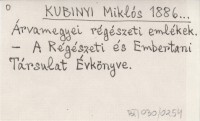 KUBINYI Miklós 1886...
Árvamegyei régészeti emlékek.
- A Régészeti és Embertani
Társulat Évkönyve.
930/0254